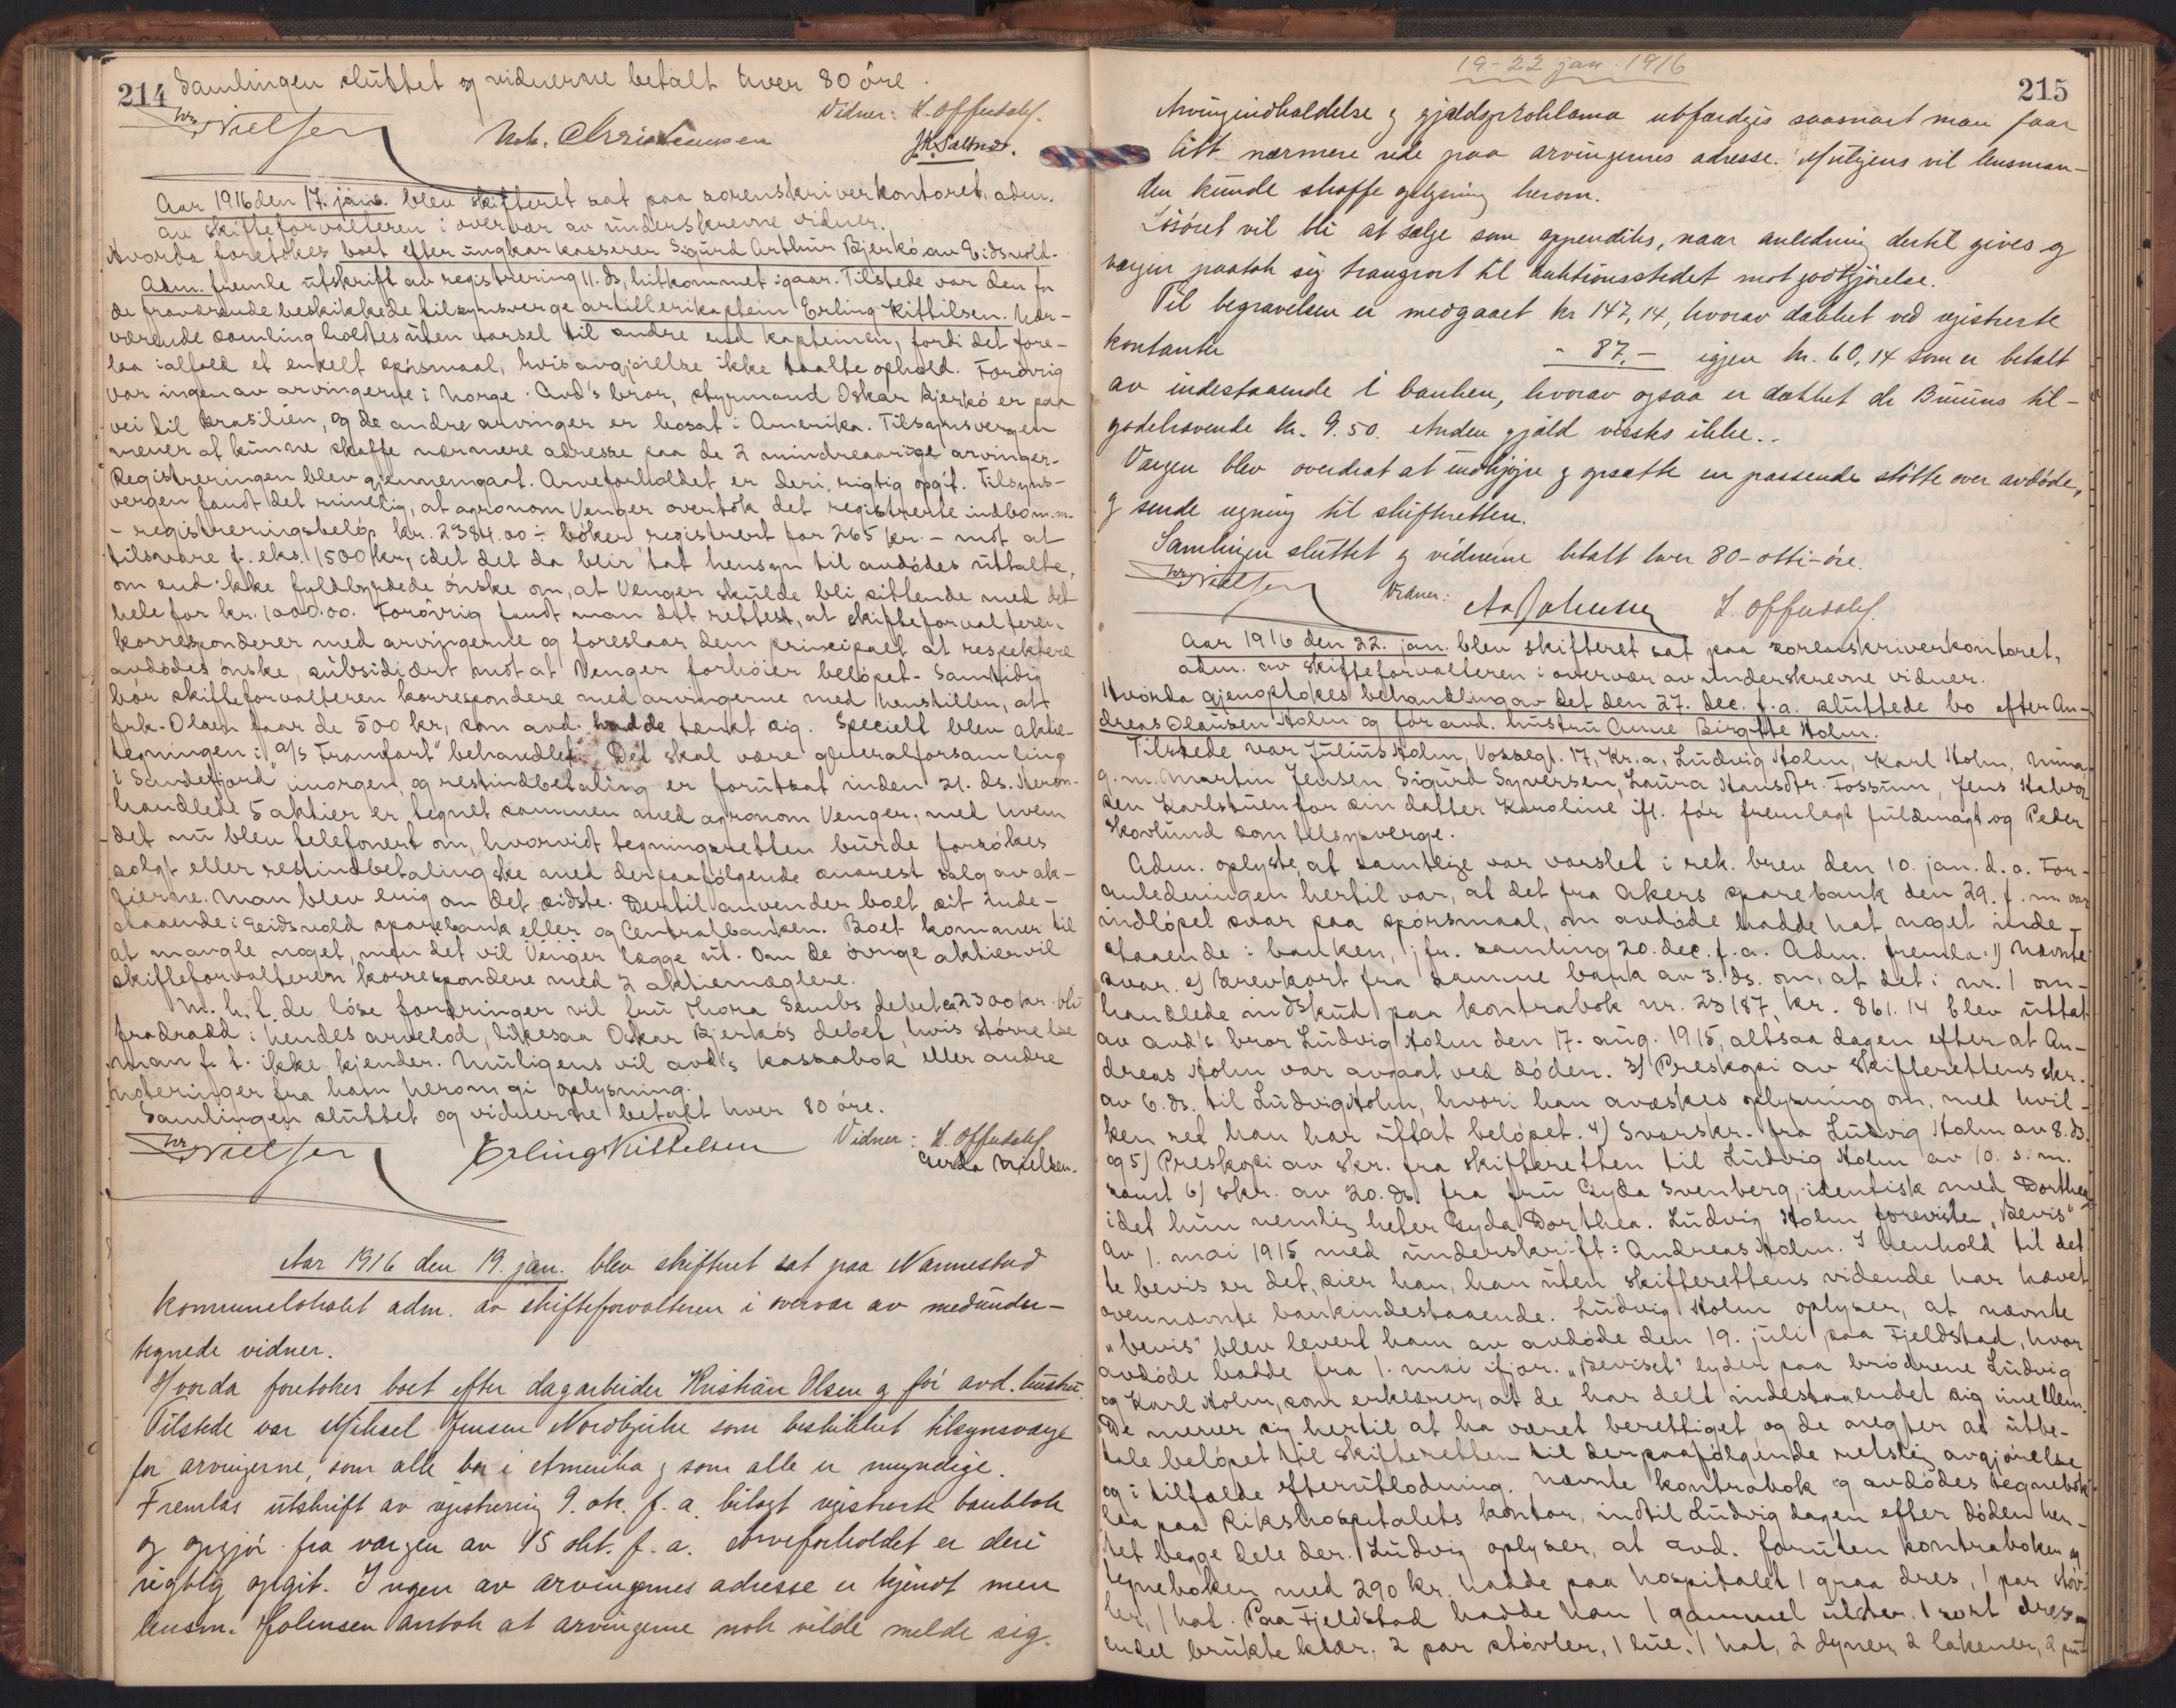 214 Samlingen sluttet og vidnerne betalt hver 80 öre.
Vidner: H. Offerdahl.
Nielsen
Christensen
Aar 1916 den 17. jan. blev skifteret sat paa sorenskriverkontoret, adm.
av skifteforvalteren i overvær av underskrevne vidner.
Hvorda foretokes boet efter ungkar kasserer Sigurd Arthur Bjerkö av Eidsvold.
Adm. fremla utskrift av registrering 11. ds, hitkommet igaar. Tilstede var den for
de fraværende beskikkede tilsynsverge artillerikaptein Erling Kittilsen. Nær-
værende samling holdtes uten varsel til andre end kapteinen, fordi det fore-
laa ialfald et enkelt spörsmaal, hvis avgjörelse ikke taalte ophold. Forövrig
var ingen av arvingerne i Norge. Avd's bror, styrmand Oskar Bjerkö er paa
vei til Brasilien, og de andre arvinger er bosat i Amerika. Tilsynsvergen
mener at kunne skaffe nærmere adresse paa de 2 mindreaarige arvinger.
Registreringen blev gjennemgaat. Arveforholdet er deri rigtig opgit. Tilsyns-
vergen fandt det rimelig, at agronom Venger overtok det registrerte indbo m.m.
- registreringsbelöp kr. 2384.00 ÷ böker registrert for 265 kr. - mot at
tilsvare f. eks. 1500 kr, idet det da blir tat hensyn til avdödes uttalte,
om end ikke fyldbyrdede önske om, at Venger skulde bli sittende med det
hele for kr. 1000.00. Forövrig fandt man det rettest, at skifteforvalteren
korresponderer med arvingerne og foreslaar dem principalt at respektere
avdödes önske, subsidiært mot at Venger forhöier belöpet. Samtidig
bör skifteforvalteren korrespondere med arvingerne med henstillen, at
frk. Olsen faar de 500 kr, som avd. hadde tænkt sig. Specielt blev aktie-
tegningen i "a/s Framfart" behandlet. Det skal være generalforsamling
i Sandefjord imorgen, og restindbetaling er forutsat inden 21. ds. Heron-
handlede 5 aktier er tegnet sammen med agronom Venger, med hvem
det nu blev telefonert om, hvorvidt tegningsretten burde forsökes
solgt eller restindbetaling ske med derpaafölgende snarest salg av ak-
tierne. Man blev enig om det sidste. Dertil anvender boet sit inde-
staaende i Eidsvold sparebank eller og Centralbanken. Boet kommer til
at mangle noget, men det vil Venger lægge ut. Om de övrige aktier vil
skifteforvalteren korrespondere med 2 aktiemæglere.
M. h. t. de löse fordringer vil fru Thora Sembs debet ca 2300 kr. bli
fradradd i hendes arvelod, likesaa Oskar Bjerkös debet, hvis störrelse
man f. t. ikke kjender. Muligens vil avd's kassabok eller andre
noteringer fra ham herom gi oplysning.
Samlingen sluttet og vidnerne betalt hver 80 öre.
Nielsen
Erling Kittelsen
Vidner: H. Offerdahl
Gerda Nielsen.
Aar 1916 den 19. jan. blev skifteret sat paa Nannestad
kommunelokalet adm. av skifteforvalteren i overvær av medunder-
tegnede vidner.
Hvorda foretokes boet efter dagarbeider Kristian Olsen og før avd. hustru.
Tilstede var Mikael Jensen Nordbykie som beskikket tilsynsværge
for arvingerne, som alle bor i Amerika og som alle er myndige.
Fremlas utskrift av registrering 9. ok. f. a. bilagt registrert bankbok
og opgjör fra værgen av 15 okt. f. a. Arveforholdet er deri
rigtig opgit. Ingen av arvingernes adresse er kjendt men
lensm. Johnsen antok at arvingerne nok vilde melde sig.
19-22 jan. 1916
215
Arvingindkaldelse og gjældsproklama utfærdiges saasnart man faar
litt nærmere rede paa arvingernes adresse. Muligens vil lensman-
den kunde skaffe oplysning herom.
Lösöret vil bli at sælge som appendiks, naar anledning dertil gives og
værgen paatok sig transport til auktionsstedet mot godtgjörelse.
Til begravelsen er medgaaet kr 147,14, hvorav dækket ved registrerte
kontanter " 87.- igjen kr. 60,14 som er betalt
av indestaaende i banken, hvorav ogsaa er dækket dr Bruuns til-
godehavende kr. 9.50. Anden gjæld vissts ikke.
Værgen blev overdrat at indkjöpe og opsætte en passende stötte over avdöde,
og sende regning til skifteretten.
Samlingen sluttet og vidnerne betalt hver 80-otti-öre.
Nielsen
Vidner: Aa Johnsen H. Offerdahl.
Aar 1916 den 22. jan. blev skifteret sat paa sorenskriverkontoret,
adm. av skifteforvalteren i overvær av underskrevne vidner.
Hvorda gjenoptokes behandling av det den 27. dec. f. a. sluttede bo efter An-
dreas Olausen Holm og før avd. hustru Anne Birgitte Holm.
Tilstede var Julius Holm, Vossegt. 17, Kr.a, Ludvig Holm, Karl Holm, Nina
g. m. Martin Jensen, Sigurd Syversen, Laura Hansdtr. Fossum, Jens Halvor
sen Karlstuen for sin datter Karoline ifl. før fremlagt fuldmagt og Peder
Skovlund som tilsynsverge.
Adm. oplyste, at samtlige var varslet i rek. brev den 10. jan. d. a. For-
anledningen hertil var, at det fra Akers sparebank den 29. f. m. var
indlöpet svar paa spörsmaal, om avdöde hadde hat noget inde-
staaende i banken, jfr. samling 20. dec. f. a. Adm. fremla: 1) Nævnte
svar. 2) Brevkort fra samme bank av 3. ds. om, at det i nr. 1 om-
handlede indskud paa kontrabok nr. 23187, kr. 861.14 blev uttat
av avd's bror Ludvig Holm den 17. aug. 1915, altsaa dagen efter at An-
dreas Holm var avgaat ved döden. 3) Preskopi av skifterettens skr.
av 6. ds. til Ludvig Holm, hvori han avæskes oplysning om, med hvil-
ken ret han har uttat belöpet. 4) Svarskr. fra Ludvig Holm av 8. ds.
og 5) Preskopi av skr. fra skifteretten til Ludvig Holm av 10. s. m.
samt 6) skr. av 20. ds. fra fru Gyda Svenberg, identisk med Dorthea
idet hun nemlig heter Gyda Dorthea. Ludvig Holm foreviste "Bevis"
av 1. mai 1915 med underskrift: Andreas Holm. I henhold til det-
te bevis er det, sier han, han uten skifterettens vidende har hævet
ovennævnte bankindestaaende. Ludvig Holm oplyser, at nævnte
"bevis" blev levert ham av avdöde den 19. juli paa Fjeldstad, hvor
avdöde hadde fra 1. mai ifjor. "Beviset" lyder paa brödrene Ludvig
og Karl Holm, som erklærer, at de har delt indestaaendet sig imellem.
De mener sig hertil at ha været berettiget og de negter at utbe-
tale belöpet til skifteretten til derpaafölgende retslig avgjörelse
og i tilfælde efterutlodning. Nævnte kontrabok og avdödes tegnebok
laa paa Rikshospitalets kontor, indtil Ludvig dagen efter döden hen-
tet begge dele der. Ludvig oplyser, at avd. foruten kontraboken og
tegneboken med 290 kr. hadde paa hospitalet 1 graa dres, 1 par stöv-
ler, 1 hat. Paa Fjeldstad hadde han 1 gammel ulster, 1 sort dres og
endel brukte klær, 2 par stövler, 1 lue, 1 hat, 2 dyner, 2 lakener, 2 pu-